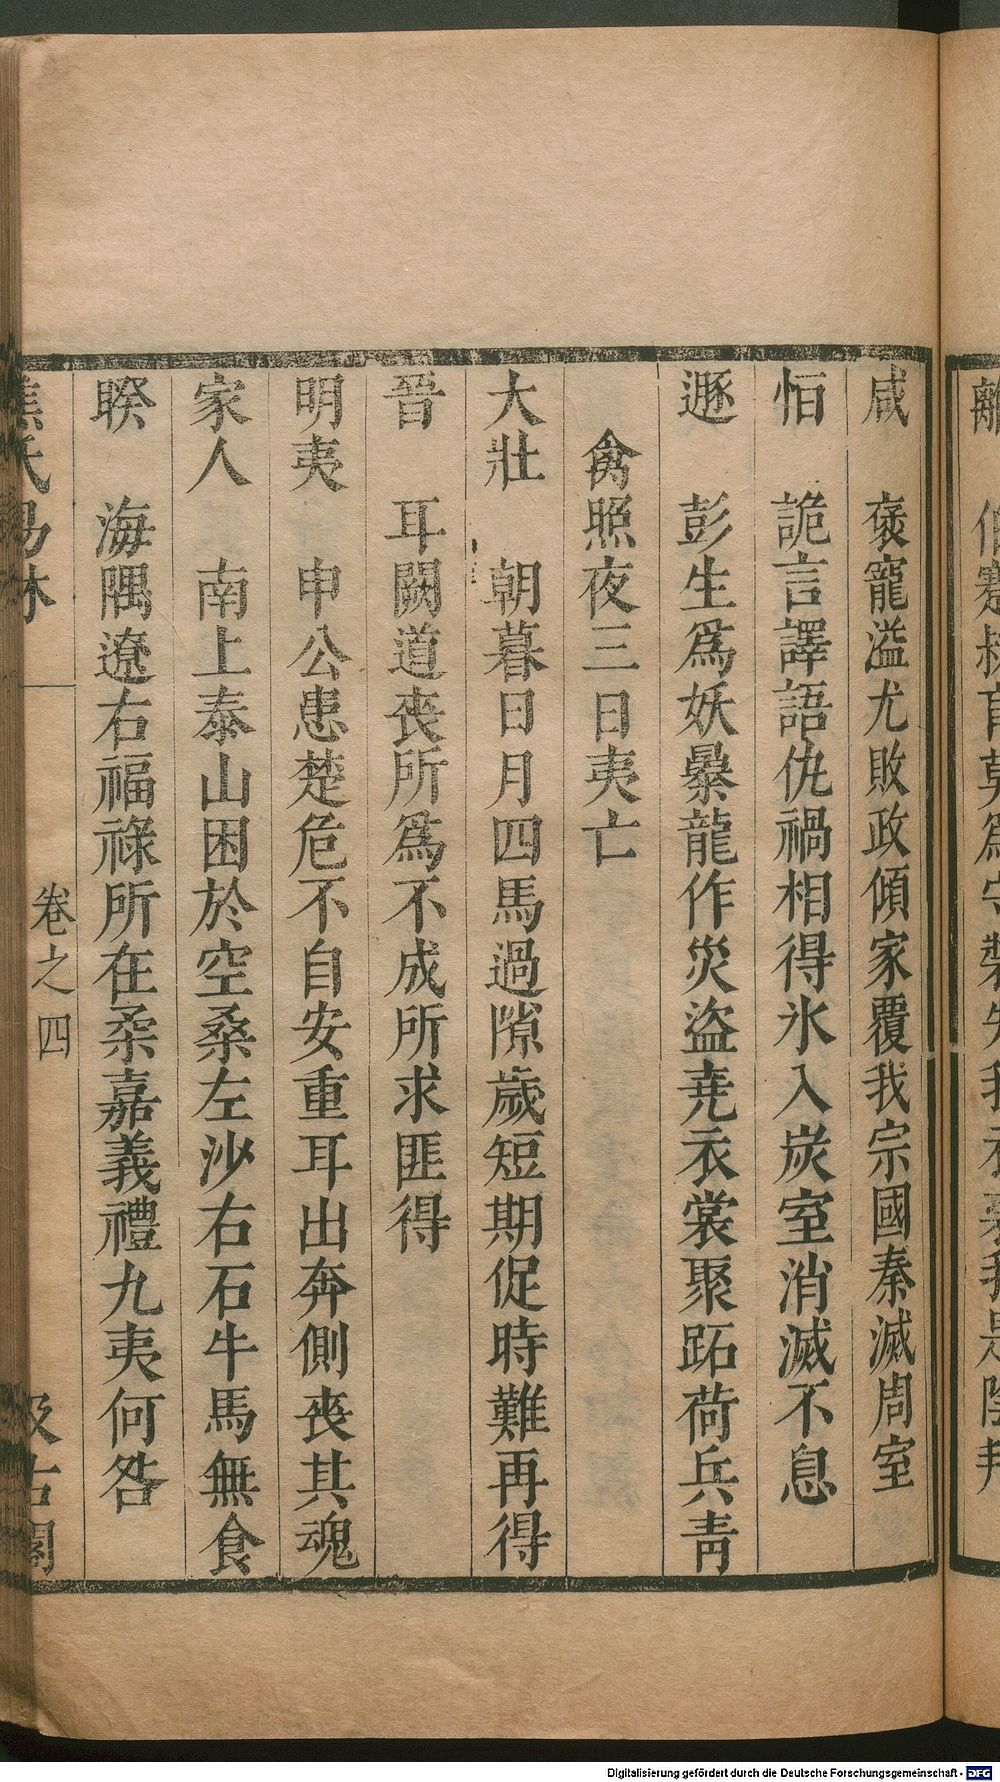 咸 褒寵溢尤敗政傾家覆我宗國秦滅周室
恒 詭言譯語仇禍相得氷入炭室消滅不息
遯 彭生爲妖暴龍作災盜堯衣裳聚跖荷兵青
禽照夜三日夷亡
大壯 朝暮日月四馬過隙歲短期促時難再得
晉 耳闕道喪所爲不成所求匪得
明夷 申公患楚危不自安重耳出奔側喪其魂
家人 南上泰山困於空桑左沙右石牛馬無食
睽 海隅遼右福祿所在柔嘉義禮九夷何咎
焦氏易林 卷之四 汲古閣
Digitalisierung gefördert durch die Deutsche Forschungsgemeinschaft - DFG